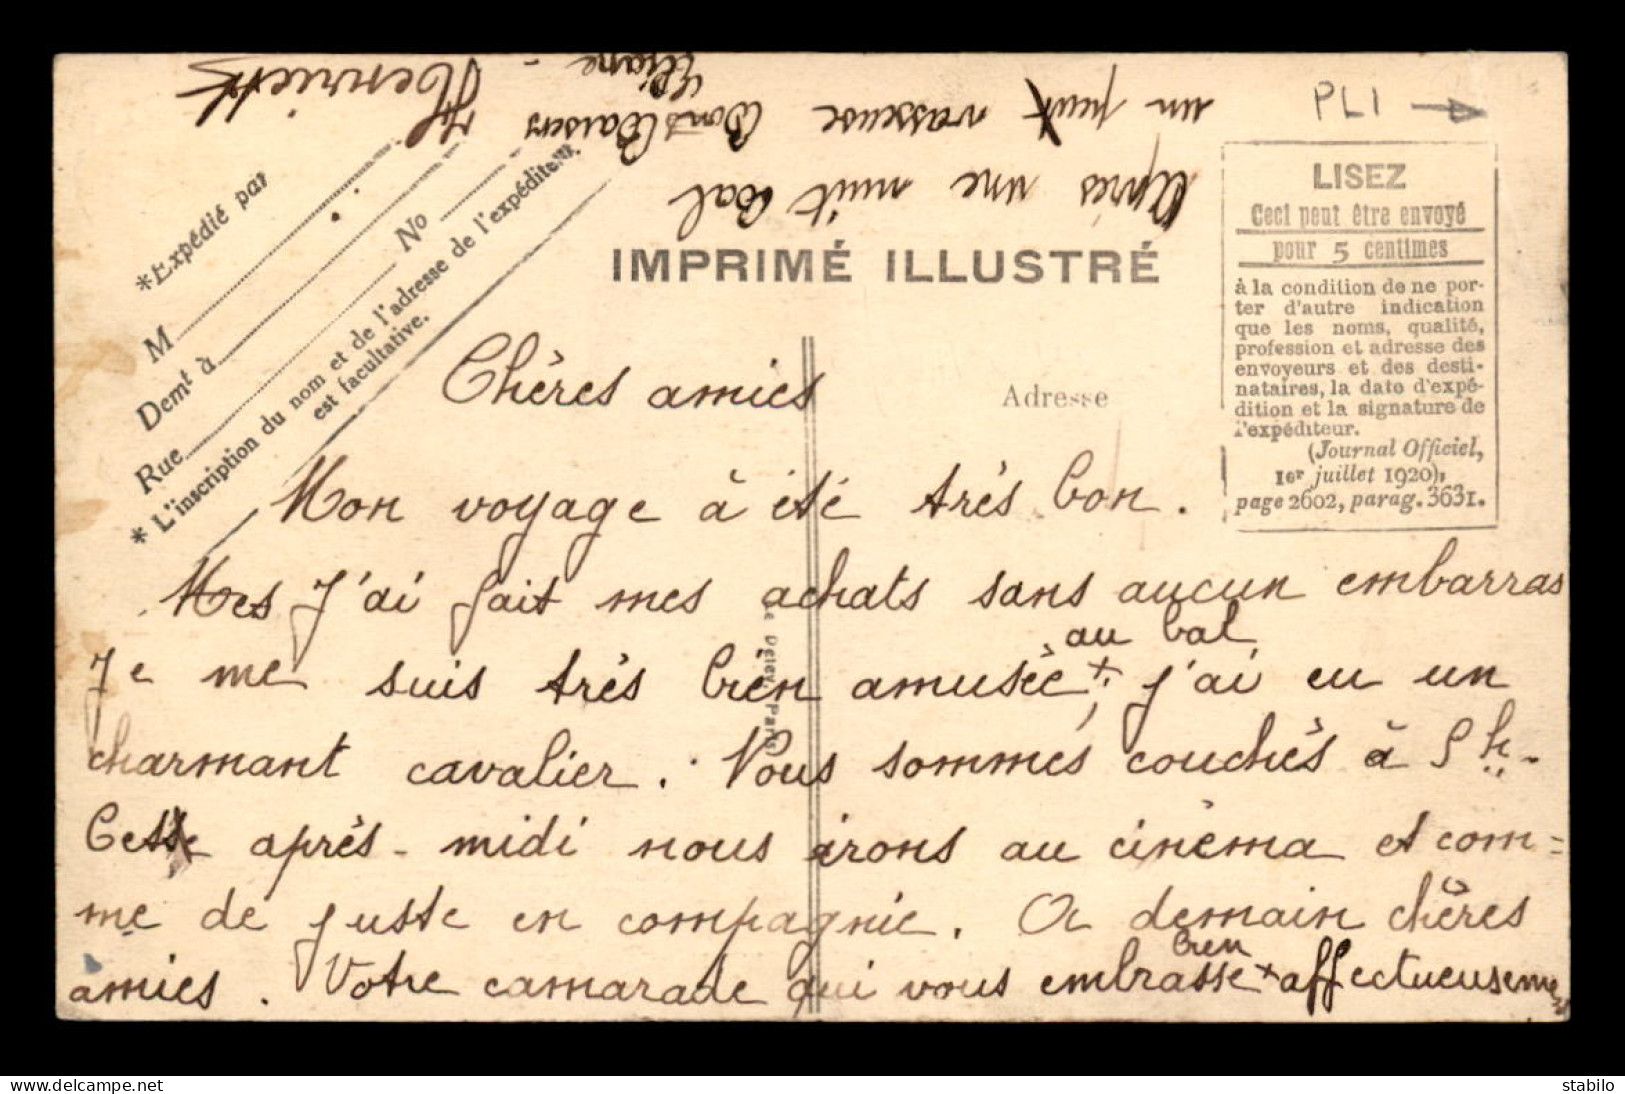 PLI
LISEZ
Ceci peut être envoyé
pour 5 centimes
à la condition de ne por-
ter d'autre indication
que les noms, qualité,
profession et adresse des
envoyeurs et des desti-
nataires, la date d'expé-
dition et la signature de
l'expéditeur.
(Journal Officiel,
1er juillet 1920),
page 2602, parag. 3631.
IMPRIMÉ ILLUSTRÉ
Adresse
*Expédié par
M
Demt à
Rue No
* L'inscription du nom et de l'adresse de l'expéditeur
est facultative.
Chères amies
Mon voyage à été très bon.
Mes J'ai fait mes achats sans aucun embarras
au bal
Je me suis très bien amusée + ; j'ai eu un
charmant cavalier. Nous sommes couchés à 5 h.
Cette après-midi nous irons au cinéma et com=
me de juste en compagnie. A demain chères
bien
amies. Votre camarade qui vous embrasse + affectueuseme
Après une nuit bal
un peu vaseuse Bons Baisers
Henriette
Liane -
Delev Paris
www.delcampe.net
stabilo